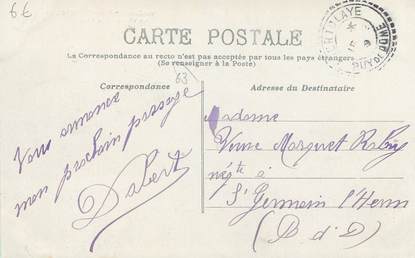 6€
CARTE POSTALE
La Correspondance au recto n'est pas acceptée par tous les pays étrangers
(Se renseigner à la Poste)
Correspondance
63
Adresse du Destinataire
Vous annonce
mon prochain passage
Dabert
Madame
Veuve Margeret
négte à
St Germain l'Herm
(P d D)
PUY-DE-DOME